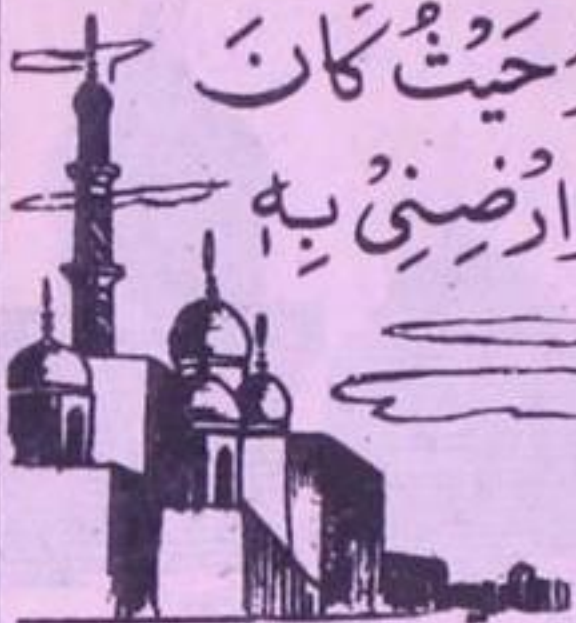 حَيْثُ كَانَ
ارْضِنِيْ بِهٖ